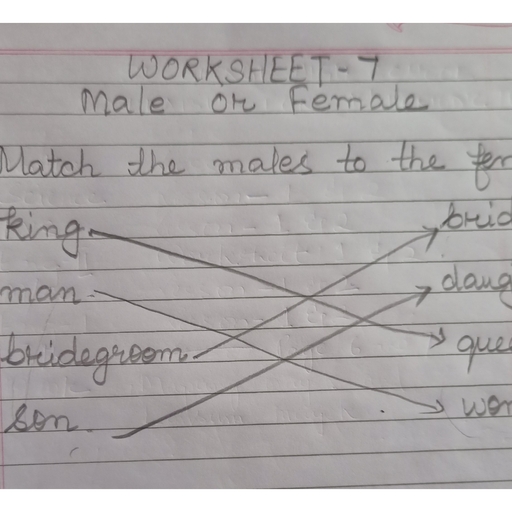 WORKSHEET-7
Male or Female
Match the males to the fem
king brid
man daug
bridegroom quee
son wom